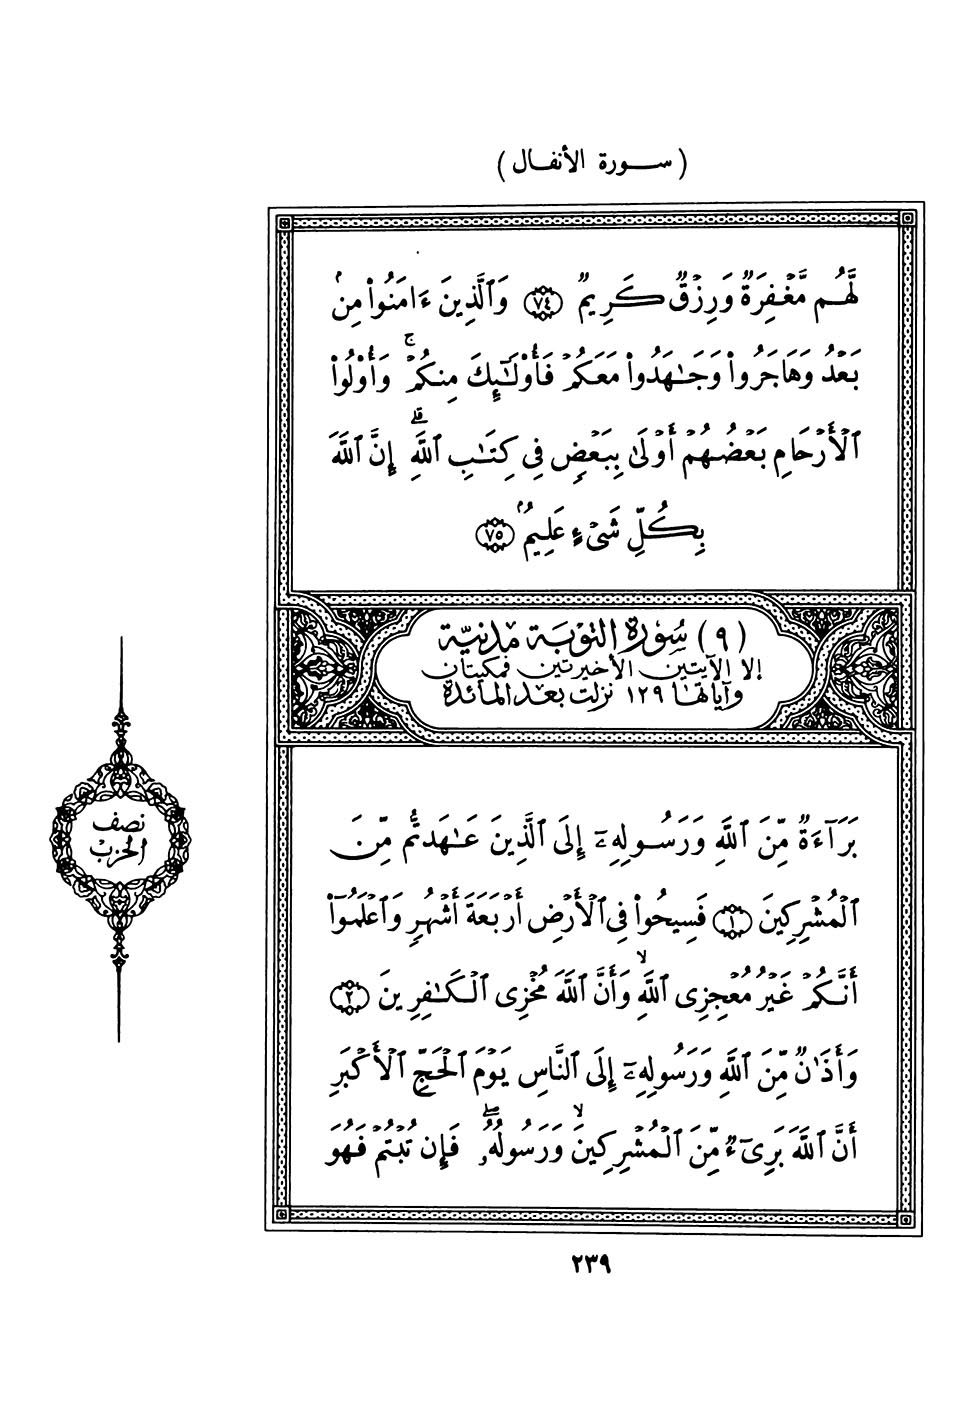 (سورة الأنفال)
لَّهُم مَّغْفِرَةٌ وَرِزْقٌ كَرِيمٌ ﴿٧٤﴾ وَٱلَّذِينَ ءَامَنُوا۟ مِنۢ
بَعْدُ وَهَاجَرُوا۟ وَجَـٰهَدُوا۟ مَعَكُمْ فَأُو۟لَـٰٓئِكَ مِنكُمْ ۚ وَأُو۟لُوا۟
ٱلْأَرْحَامِ بَعْضُهُمْ أَوْلَىٰ بِبَعْضٍ فِى كِتَـٰبِ ٱللَّهِ ۗ إِنَّ ٱللَّهَ
بِكُلِّ شَىْءٍ عَلِيمٌۢ ﴿٧٥﴾
(٩) سُورَة التوبَة مَدنيَّة
إلا الآيتين الأخيرتين فمكيتان
وآياتها ١٢٩ نزلت بعد المائدة
نصف
الحزب
بَرَآءَةٌ مِّنَ ٱللَّهِ وَرَسُولِهِۦٓ إِلَى ٱلَّذِينَ عَـٰهَدتُّم مِّنَ
ٱلْمُشْرِكِينَ ﴿١﴾ فَسِيحُوا۟ فِى ٱلْأَرْضِ أَرْبَعَةَ أَشْهُرٍ وَٱعْلَمُوٓا۟
أَنَّكُمْ غَيْرُ مُعْجِزِى ٱللَّهِ ۙ وَأَنَّ ٱللَّهَ مُخْزِى ٱلْكَـٰفِرِينَ ﴿٢﴾
وَأَذَٰنٌ مِّنَ ٱللَّهِ وَرَسُولِهِۦٓ إِلَى ٱلنَّاسِ يَوْمَ ٱلْحَجِّ ٱلْأَكْبَرِ
أَنَّ ٱللَّهَ بَرِىٓءٌ مِّنَ ٱلْمُشْرِكِينَ ۙ وَرَسُولُهُۥ ۖ فَإِن تُبْتُمْ فَهُوَ
٢٣٩